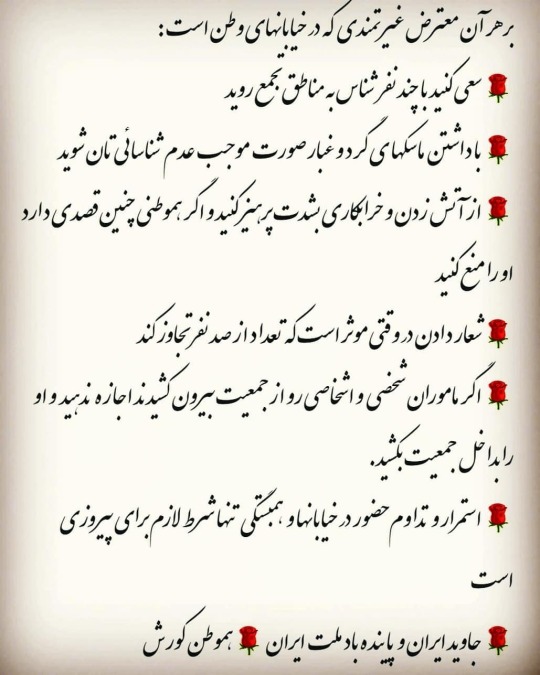 بر هر آن معترض غیرتمندی که در خیابانهای وطن است:
🌹 سعی کنید با چند نفر شناس به مناطق تجمع روید
🌹 با داشتن ماسکهای گرد و غبار صورت موجب عدم شناسائی تان شوید
🌹 از آتش زدن و خرابکاری بشدت پرهیز کنید و اگر هموطنی چنین قصدی دارد
او را منع کنید
🌹 شعار دادن در وقتی موثر است که تعداد از صد نفر تجاوز کند
🌹 اگر ماموران شخصی و اشخاصی رو از جمعیت بیرون کشیدند اجازه ندهید و او
را بداخل جمعیت بکشید.
🌹 استمرار و تداوم حضور در خیابانها و همبستگی تنها شرط لازم برای پیروزی
است
🌹 جاوید ایران و پاینده باد ملت ایران 🌹 هموطن کورش